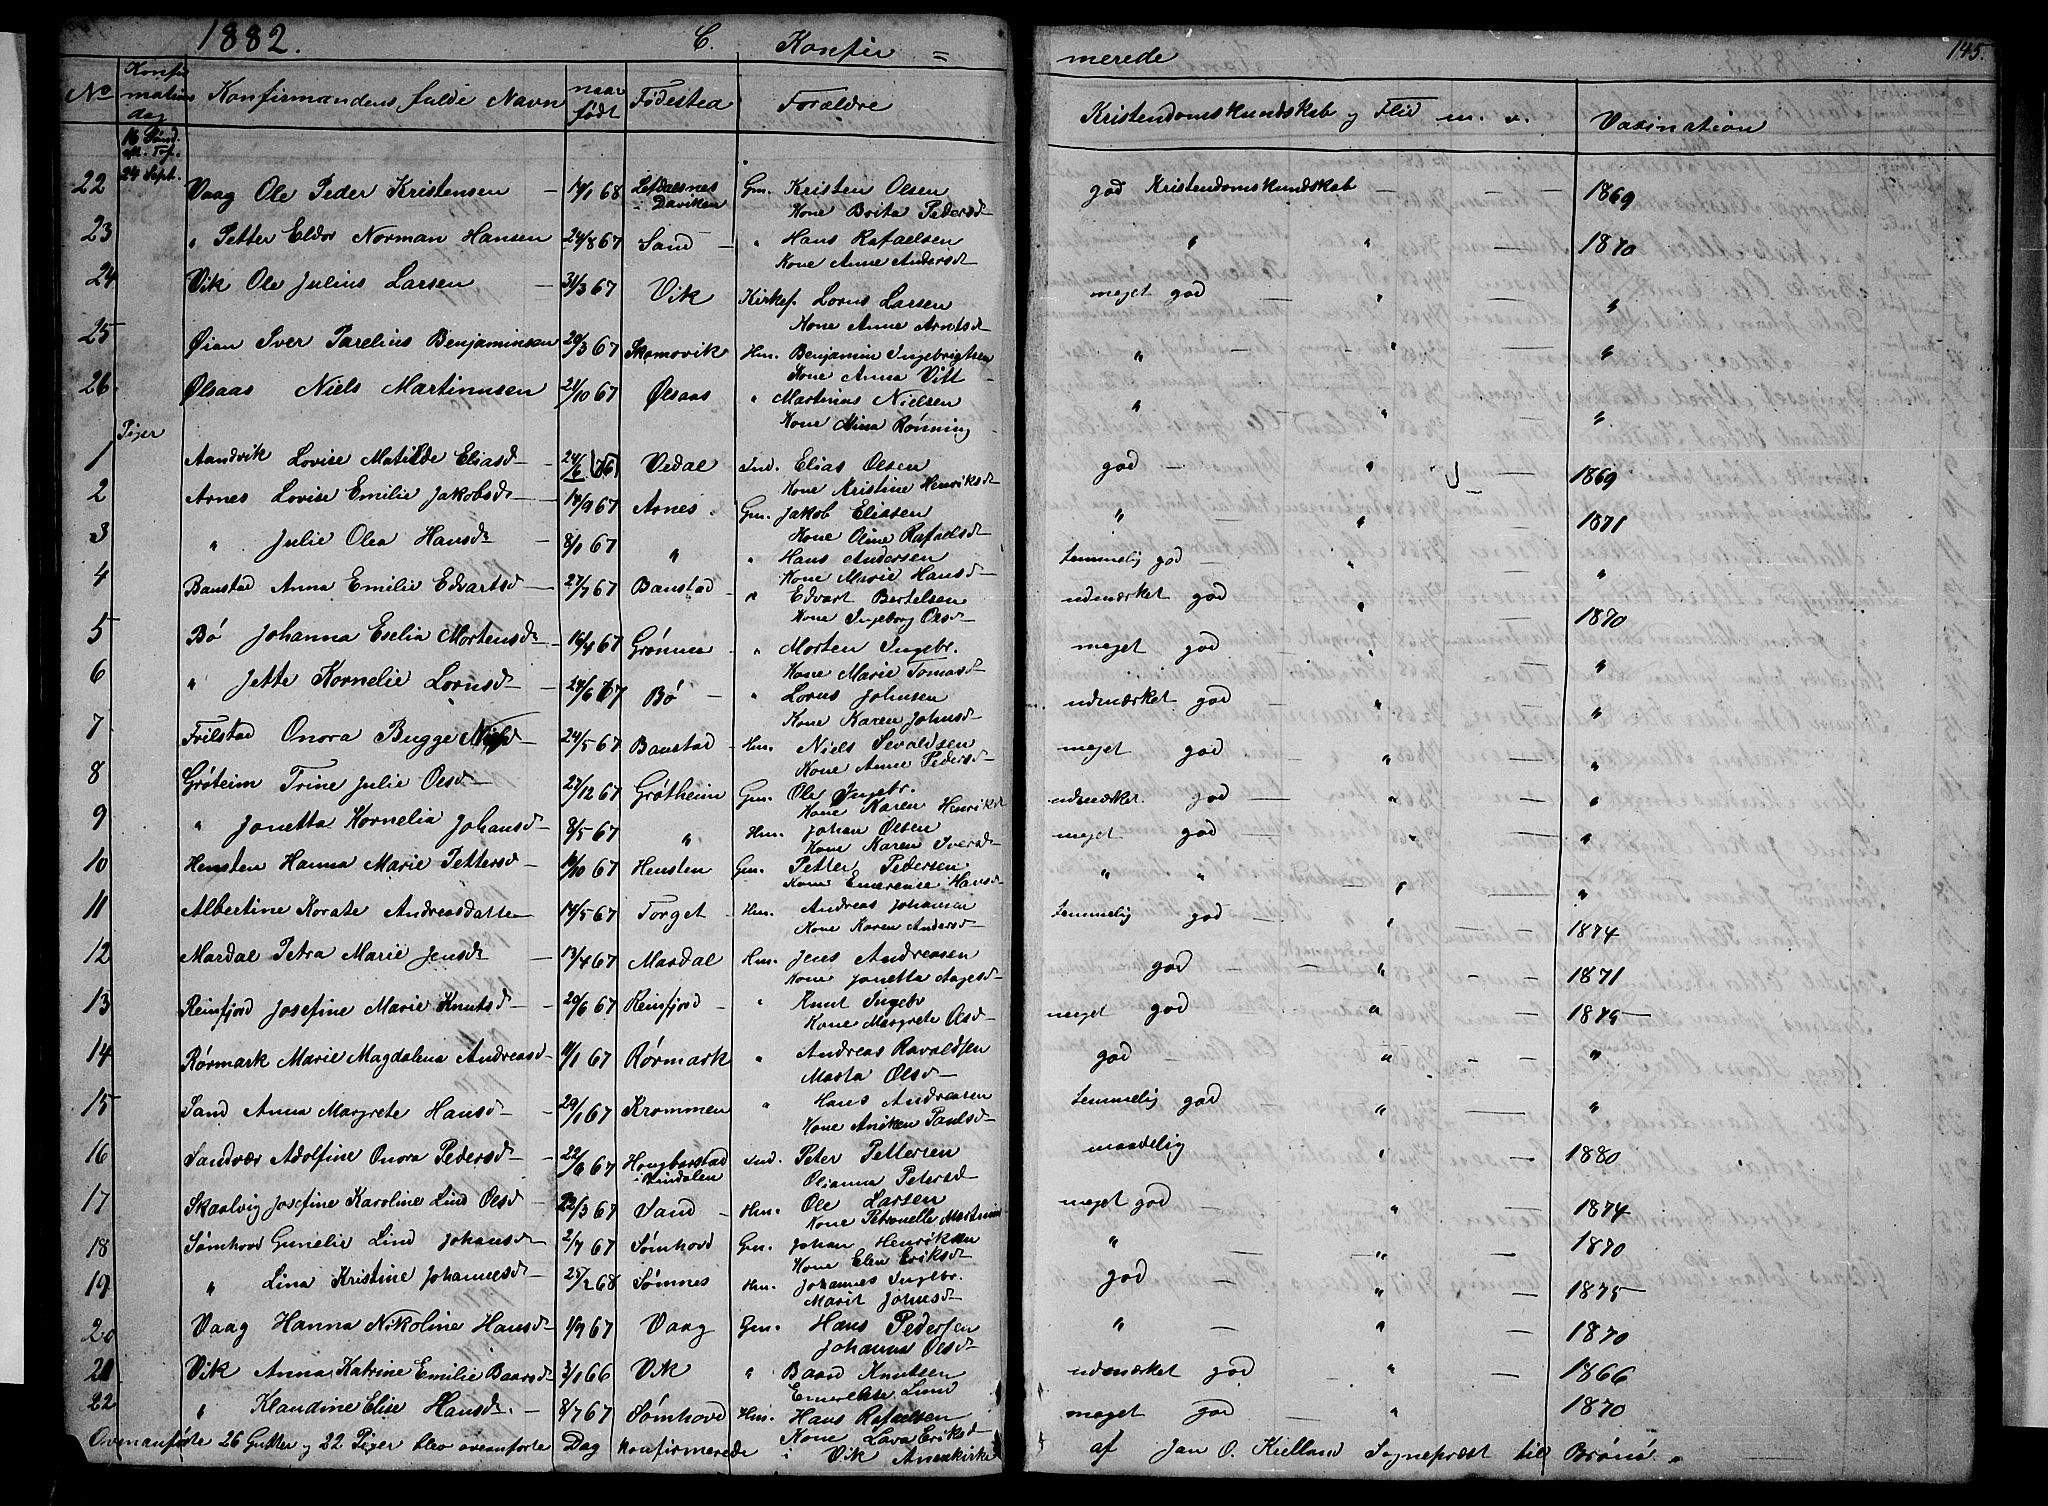 1882. C. Konfir = merede 145.
No Konfirmations dag Konfirmandens fulde Navn naar født Fødested Forældre Kristendomskundskab og Flid m. v. Vaxination
16 Sönd. eft. Tref.
24 Sept.
22 Vaag Ole Peder Kristensen — 14/1 68 Lefdalsnes i Daviken Gm. Kristen Olsen god Kristendomskundskab — — 1869
Kone Brita Pedersd
23 " Petter Eldor Norman Hansen 24/8 67 Sand — " Hans Rafaelsen " " — 1870
Kone Anne Andersd
24 Vik Ole Julius Larsen — 31/3 67 Vik Kirkes. Lorns Larsen meget god — " — "
Kone Anne Arntsd
25 Øien Iver Parelius Benjaminsen 29/3 67 Skomovik Hm. Benjamin Ingebrigtsen " — " — "
Kone Anna Vitt
26. Ølsaas Niels Martinusen 21/10 67 Ølsaas " Martinus Nielsen " — " — "
Kone Mina Rønning
Piger
1 Aandvik Lovise Matilde Eliasd — 24/6 (76) Vedal Ind. Elias Olsen god — " — 1869
Kone Kristine Henriksd
2 Arnes Lovise Emilie Jakobsd — 14/9 67 Arnes . Gm. Jakob Eliasen " " — 1871
Kone Oline Rafaelsd
3 " Julie Olea Hansd — 8/1 67 " " Hans Andersen temmelig god — " — "
Kone Marie Hansd
4 Banstad Anna Emilie Edvartsd — 27/7 67 Banstad — " Edvart Bertelsen udmærket god " — 1870
Kone Ingeborg Olsd
5 Bø Johanna Eselia Mortensd — 16/4 67 Grønna " Morten Ingebr. meget god " — "
Kone Marie Tomasd
6 " Jette Kornelie Lornsd — 24/6 67 Bø — " Lorns Johnsen udmærket god " — "
Kone Karen Johnsd
7 Frilstad Onora Bugge Nilsd — 24/5 67 Banstad — Hm. Niels Sevaldsen meget god — " — "
Kone Anne Pedersd
8 Grøteim Trine Julie Olsd — 27/12 67 Grøtheim Gm. Ole Ingebr. udmærket god — " — "
Kone Karen Henriksd
9 " Jonetta Kornelia Johansd — 8/5 67 " Hm. Johan Olsen meget god — " — "
Kone Karen Iversd
10 Hensten Hanna Marie Pettersd — 10/10 67 Hensten Gm. Petter Pedersen " " — " — "
Kone Emerense Hansd
11 Albertine Korate Andreasdatter 14/5 67 Torget — Hm. Andreas Johannes temmelig god — " — 1874
Kone Karen Andersd
12 Mardal Petra Marie Jensd 13/4 67 Mardal Hm. Jens Andreasen god — " — 1871
Kone Jonetta Aagesd
13 Reinfjord Josefine Marie Knutsd — 20/6 67 Reinfjord — " Knut Ingebr meget god " — 1875
Kone Margrete Olsd
14 Rørmark Marie Magdalena Andreasd 9/1 67 Rørmark " Andreas Ravaldsen god — " — "
Marta Olsd
15 Sand Anna Margrete Hansd — 29/1 67 Krommen " Hans Andreasen temmelig god — " — "
Kone Aniken Paulsd
16 Sandvær Adolfine Onora Pedersd — 22/6 67 Hongbarstad i Vindalen Ind. Peter Pettersen maadelig " — 1880
Olianna Petersd
17 Skaalvig Josefine Karoline Lind Olsd 22/3 67 Sand — Hm. Ole Larsen meget god " — 1874
Kone Petronelle Martinus
18 Sømhovd Gunelie Lind Johansd 2/7 67 Sømhovd Gm. Johan Henriksen " — " — 1870
Kone Elen Eriksd
19 " Lina Kristine Johannesd — 25/2 68 Sømnes Hm. Johannes Ingebr. god — " — 1875
Marit Johnsd
20 Vaag Hanna Nikoline Hansd 1/9 67 Vaag Gm. Hans Pedersen " — " — 1870
Johanna Olsd
21 Vik Anna Katrine Emilie Baarsd 3/1 66 Vik " Baard Knutsen udmærket god " — 1866
Emerentse Lund
22 " Klaudine Elise Hansd. — 8/7 67 Sømhovd Hm. Hans Rafaelsen meget god — " — 1870
Kone Lava Eriksd
Ovenanførte 26 Gutter og 22 Piger blev ovenanførte Dag konfirmerede i Vik Annexkirke af Jan O. Kielland Sogneprest til Brønø.